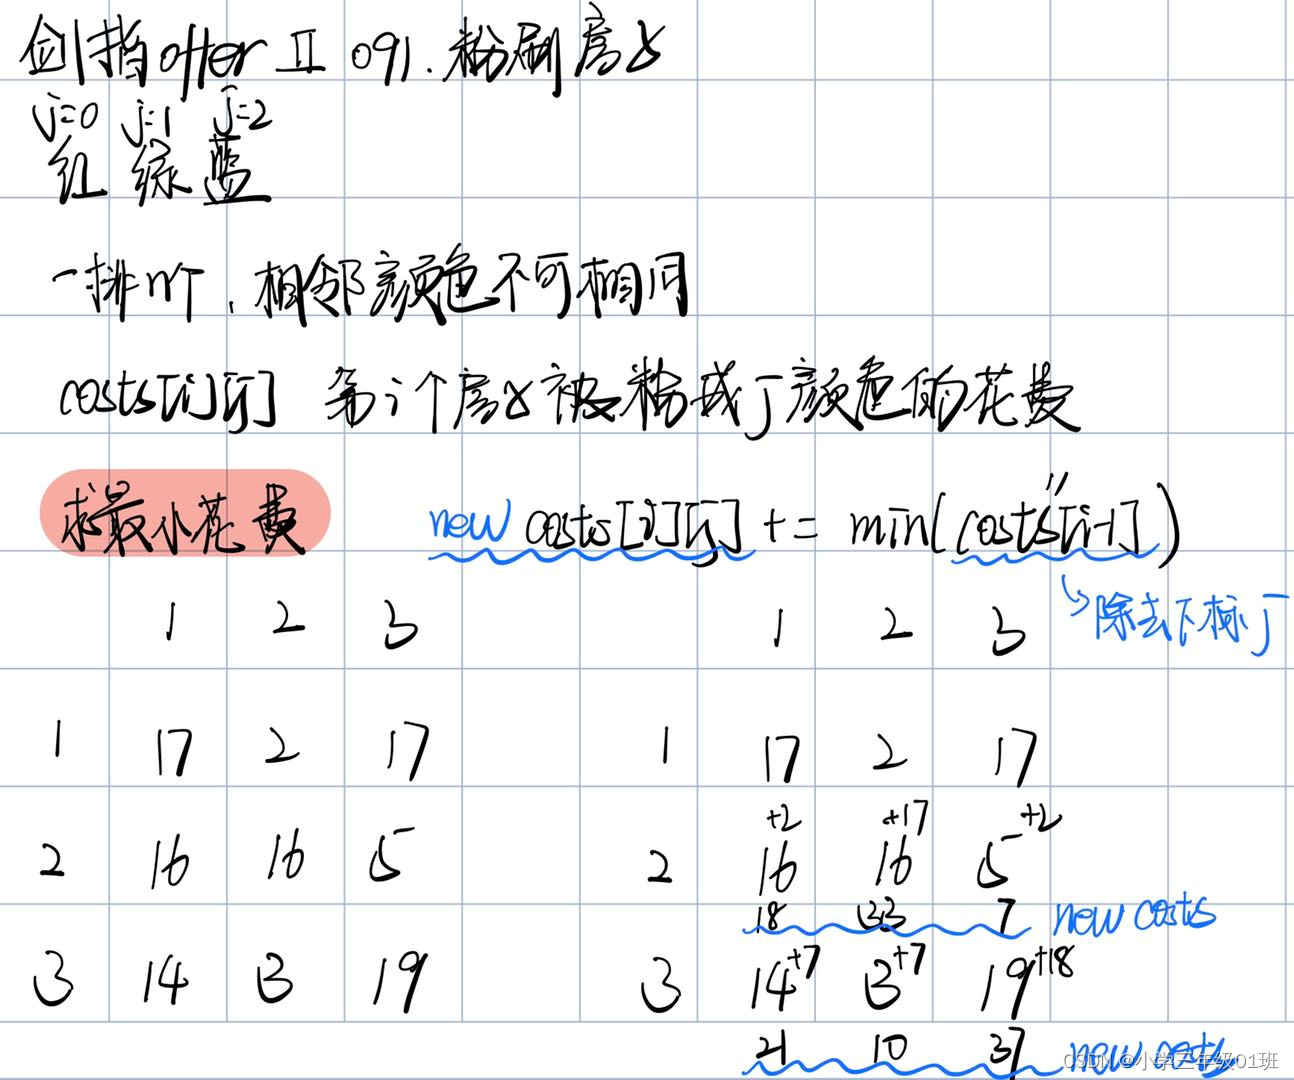 剑指offer II 091.粉刷房子
j=0 j=1 j=2
红 绿 蓝
一排n个,相邻颜色不可相同
costs[i][j] 第i个房子被粉成j颜色的花费
求最小花费 new costs[i][j] += min(costs[i-1])
1 2 3 1 2 3 除去下标j
1 17 2 17 1 17 2 17
+2 +17 +2
2 16 16 5 2 16 16 5
18 33 7 new costs
3 14 3 19 3 14+7 3+7 19+18
21 10 37 new costs
CSDN @小学三年级01班